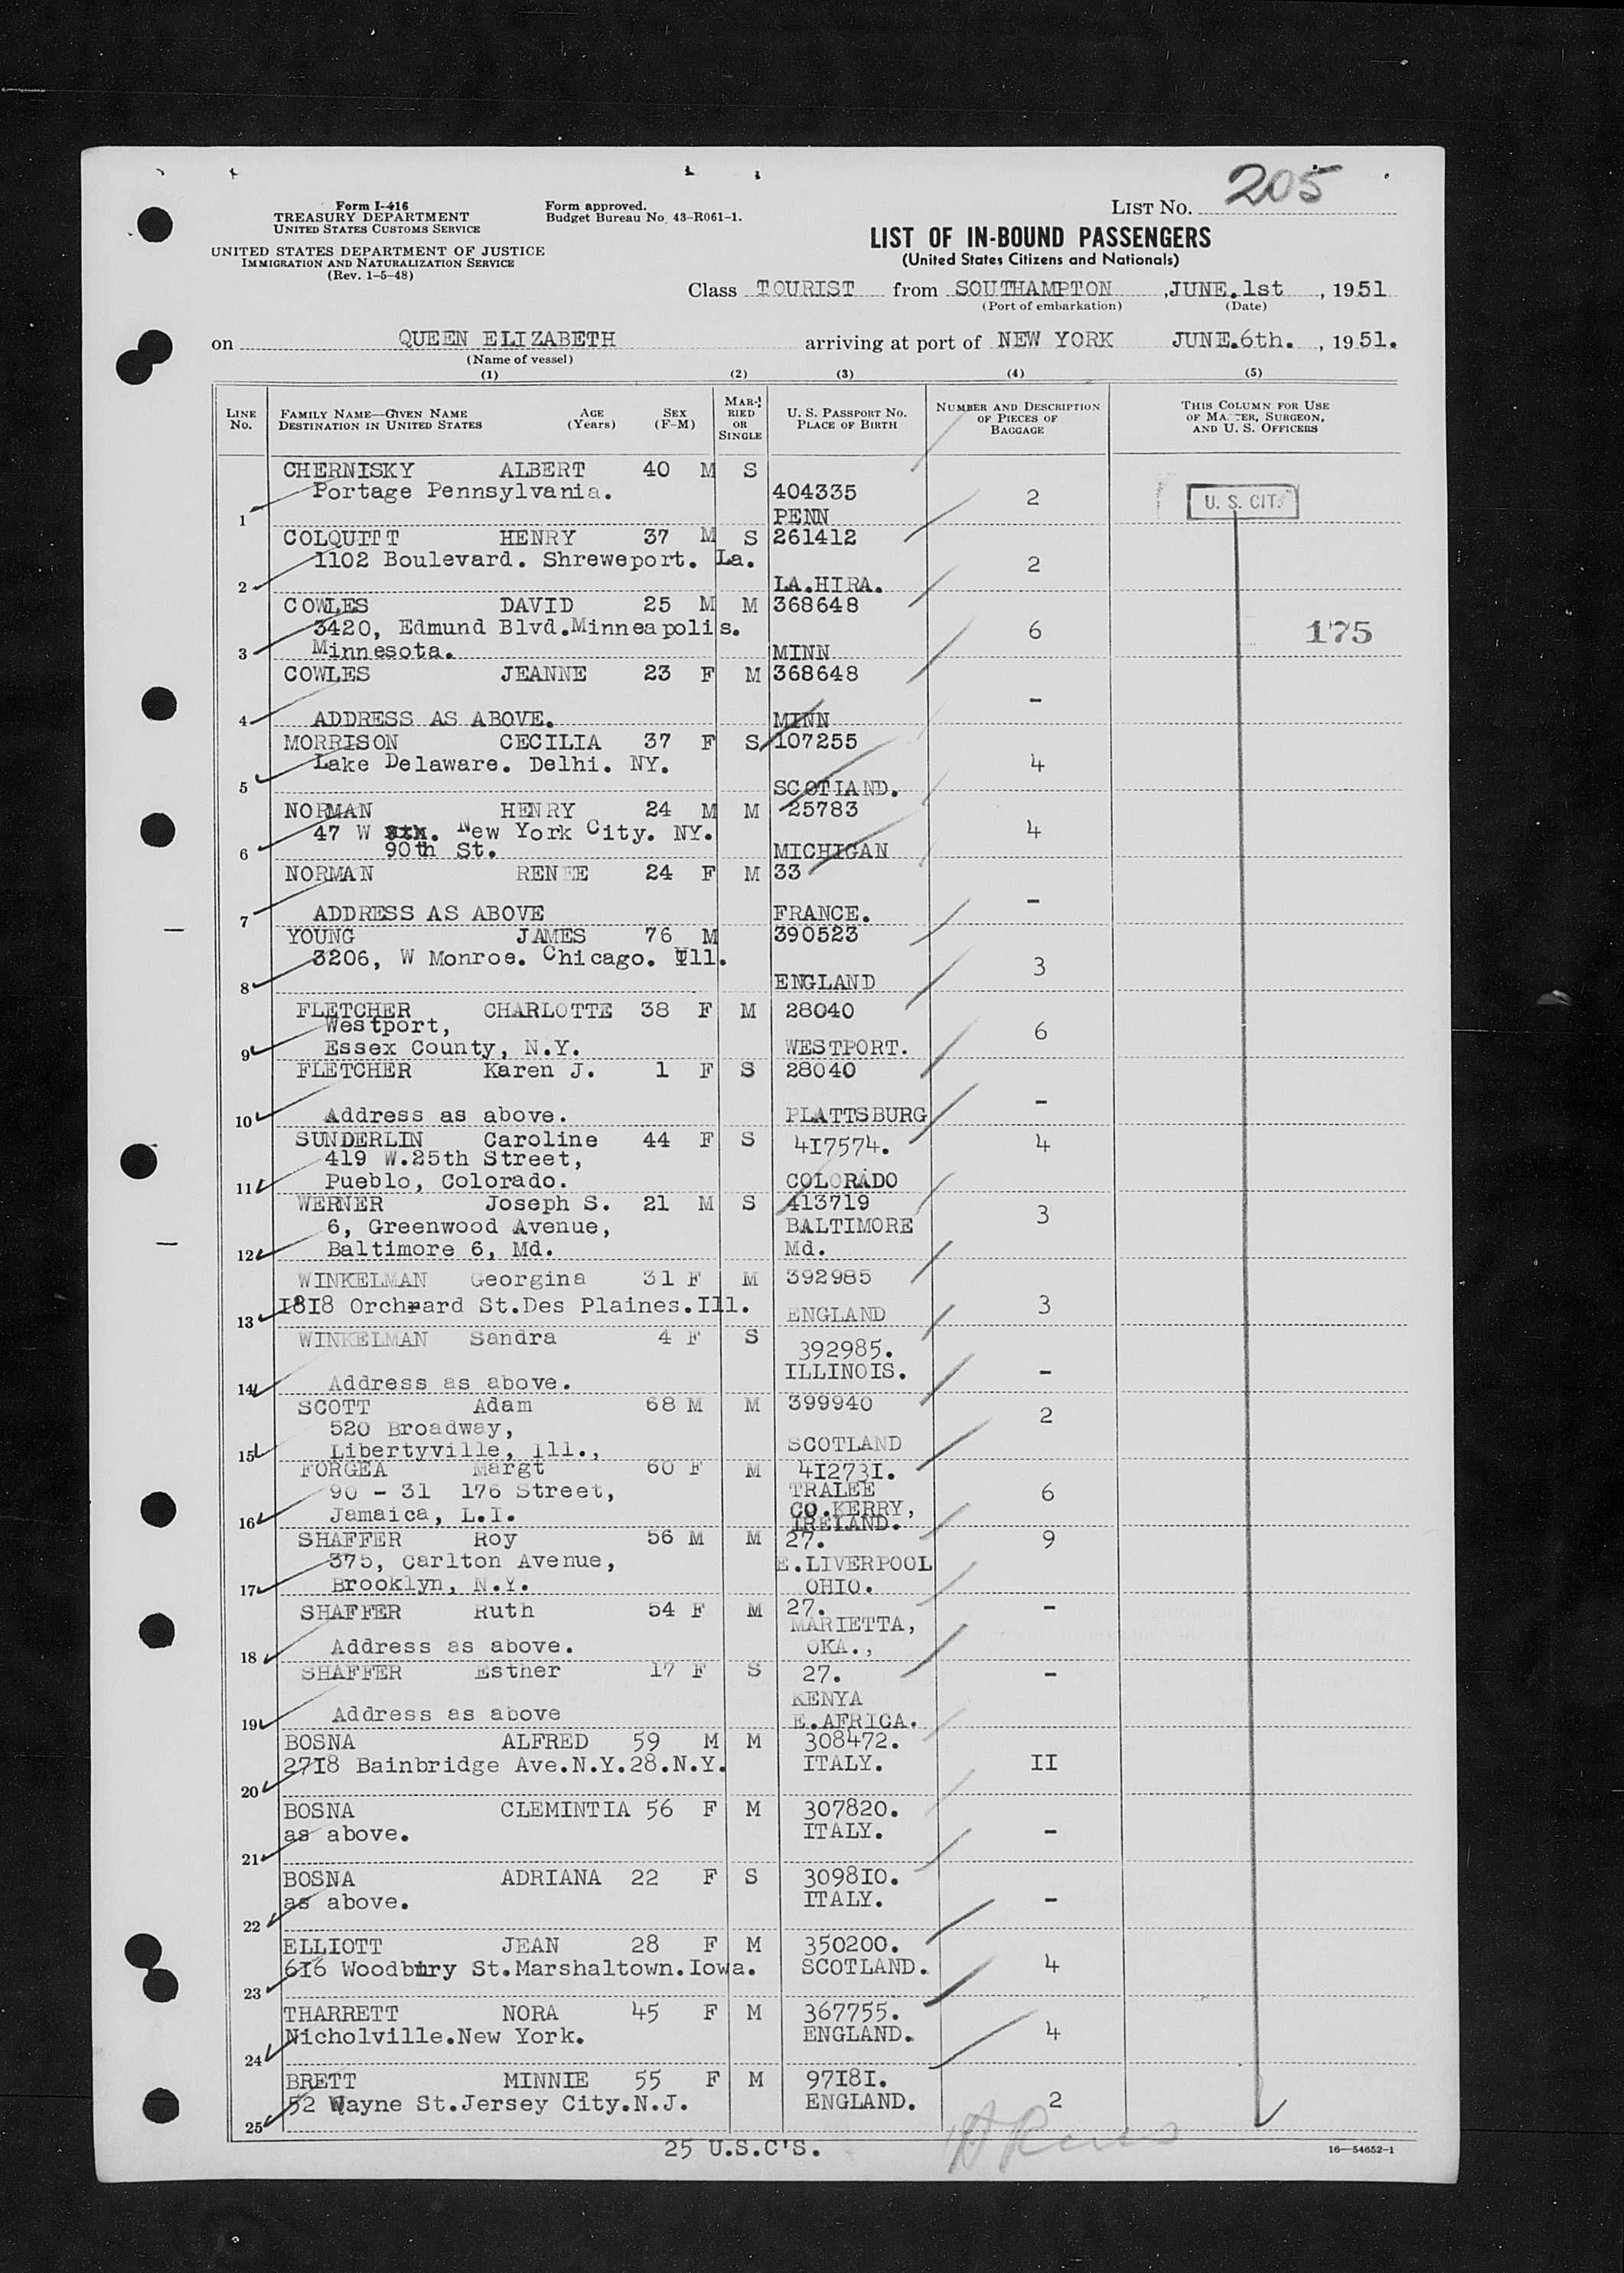 205
Form I-416
TREASURY DEPARTMENT
UNITED STATES CUSTOMS SERVICE
Form approved.
Budget Bureau No. 43-R061-1.
LIST NO.
UNITED STATES DEPARTMENT OF JUSTICE
IMMIGRATION AND NATURALIZATION SERVICE
(Rev. 1-5-48)
LIST OF IN-BOUND PASSENGERS
(United States Citizens and Nationals)
Class TOURIST from SOUTHAMPTON, JUNE.1st, 1951
(Port of embarkation) (Date)
on QUEEN ELIZABETH arriving at port of NEW YORK JUNE.6th., 1951.
(Name of vessel)
(1) (2) (3) (4) (5)
LINE No. FAMILY NAME—GIVEN NAME DESTINATION IN UNITED STATES AGE (Years) SEX (F-M) MARRIED OR SINGLE U. S. PASSPORT NO. PLACE OF BIRTH NUMBER AND DESCRIPTION OF PIECES OF BAGGAGE THIS COLUMN FOR USE OF MASTER, SURGEON, AND U. S. OFFICERS
CHERNISKY ALBERT 40 M S
Portage Pennsylvania. 404335 2 U. S. CIT.
1 PENN
COLQUITT HENRY 37 M S 261412
1102 Boulevard. Shreweport. La. 2
2 LA.HIRA.
COWLES DAVID 25 M M 368648
3420, Edmund Blvd.Minneapolis. 6 175
3 Minnesota. MINN
COWLES JEANNE 23 F M 368648
-
4 ADDRESS AS ABOVE. MINN
MORRISON CECILIA 37 F S 107255
Lake Delaware. Delhi. NY. 4
5 SCOTIAND.
NORMAN HENRY 24 M M 25783
47 W . New York City. NY. 4
6 90th St. MICHIGAN
NORMAN RENEE 24 F M 33
-
7 ADDRESS AS ABOVE FRANCE.
YOUNG JAMES 76 M 390523
3206, W Monroe. Chicago. Ill. 3
8 ENGLAND
FLETCHER CHARLOTTE 38 F M 28040
Westport, 6
9 Essex County, N.Y. WESTPORT.
FLETCHER Karen J. 1 F S 28040
-
10 Address as above. PLATTSBURG
SUNDERLIN Caroline 44 F S 417574. 4
419 W.25th Street,
11 Pueblo, Colorado. COLORADO
WERNER Joseph S. 21 M S 413719
6, Greenwood Avenue, BALTIMORE 3
12 Baltimore 6, Md. Md.
WINKELMAN Georgina 31 F M 392985
1818 Orchrard St.Des Plaines.Ill. ENGLAND 3
13
WINKELMAN Sandra 4 F S 392985.
ILLINOIS. -
14 Address as above.
SCOTT Adam 68 M M 399940
520 Broadway, 2
15 Libertyville, Ill., SCOTLAND
FORGEA Margt 60 F M 412731.
90 - 31 176 Street, TRALEE 6
16 Jamaica, L.I. CO.KERRY,
IRELAND.
SHAFFER Roy 56 M M 27. 9
375, Carlton Avenue, E.LIVERPOOL
17 Brooklyn, N.Y. OHIO.
SHAFFER Ruth 54 F M 27. -
MARIETTA,
18 Address as above. OKA.,
SHAFFER Esther 17 F S 27. -
KENYA
19 Address as above E.AFRICA.
BOSNA ALFRED 59 M M 308472.
2718 Bainbridge Ave.N.Y.28.N.Y. ITALY. II
20
BOSNA CLEMINTIA 56 F M 307820.
as above. ITALY. -
21
BOSNA ADRIANA 22 F S 309810.
as above. ITALY. -
22
ELLIOTT JEAN 28 F M 350200.
616 Woodbury St.Marshaltown.Iowa. SCOTLAND. 4
23
THARRETT NORA 45 F M 367755.
Nicholville.New York. ENGLAND. 4
24
BRETT MINNIE 55 F M 97181.
52 Wayne St.Jersey City.N.J. ENGLAND. 2
25
25 U.S.C'S.
16—54652-1